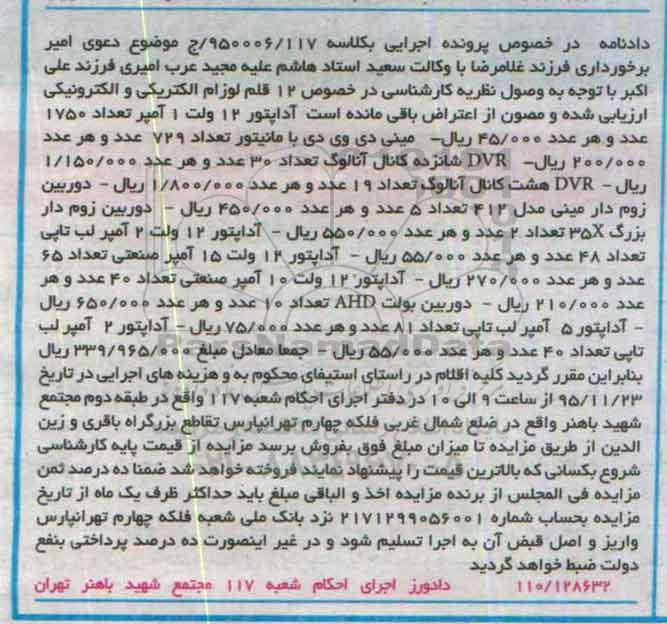 دادنامه در خصوص پرونده اجرایی بکلاسه ۹۵۰۰۰۶/۱۱۷/ج موضوع دعوی امیر
برخورداری فرزند غلامرضا با وکالت سعید استاد هاشم علیه مجید عرب امیری فرزند علی
اکبر با توجه به وصول نظریه کارشناسی در خصوص ۱۲ قلم لوزام الکتریکی و الکترونیکی
ارزیابی شده و مصون از اعتراض باقی مانده است آداپتور ۱۲ ولت ۱ آمپر تعداد ۱۷۵۰
عدد و هر عدد ۴۵/۰۰۰ ریال– مینی دی وی دی با مانیتور تعداد ۷۲۹ عدد و هر عدد
۲۰۰/۰۰۰ ریال– DVR شانزده کانال آنالوگ تعداد ۳۰ عدد و هر عدد ۱/۱۵۰/۰۰۰
ریال – DVR هشت کانال آنالوگ تعداد ۱۹ عدد و هر عدد ۱/۸۰۰/۰۰۰ ریال – دوربین
زوم دار مینی مدل ۴۱۲ تعداد ۵ عدد و هر عدد ۴۵۰/۰۰۰ ریال – دوربین زوم دار
بزرگ ۳۵X تعداد ۲ عدد و هر عدد ۵۵۰/۰۰۰ ریال – آداپتور ۱۲ ولت ۲ آمپر لب تاپی
تعداد ۴۸ عدد و هر عدد ۵۵/۰۰۰ ریال – آداپتور ۱۲ ولت ۱۵ آمپر صنعتی تعداد ۶۵
عدد و هر عدد ۲۷۰/۰۰۰ ریال – آداپتور ۱۲ ولت ۱۰ آمپر صنعتی تعداد ۴۰ عدد و هر
عدد ۲۱۰/۰۰۰ ریال – دوربین بولت AHD تعداد ۱۰ عدد و هر عدد ۶۵۰/۰۰۰ ریال
– آداپتور ۵ آمپر لب تاپی تعداد ۸۱ عدد و هر عدد ۷۵/۰۰۰ ریال – آداپتور ۲ آمپر لب
تاپی تعداد ۴۰ عدد و هر عدد ۵۵/۰۰۰ ریال – جمعا معادل مبلغ ۳۳۹/۹۶۵/۰۰۰ ریال
بنابراین مقرر گردید کلیه اقلام در راستای استیفای محکوم به و هزینه های اجرایی در تاریخ
۹۵/۱۱/۲۳ از ساعت ۹ الی ۱۰ در دفتر اجرای احکام شعبه ۱۱۷ واقع در طبقه دوم مجتمع
شهید باهنر واقع در ضلع شمال غربی فلکه چهارم تهرانپارس تقاطع بزرگراه باقری و زین
الدین از طریق مزایده تا میزان مبلغ فوق بفروش برسد مزایده از قیمت پایه کارشناسی
شروع بکسانی که بالاترین قیمت را پیشنهاد نمایند فروخته خواهد شد ضمنا ده درصد ثمن
مزایده فی المجلس از برنده مزایده اخذ و الباقی مبلغ باید حداکثر ظرف یک ماه از تاریخ
مزایده بحساب شماره ۲۱۷۱۲۹۹۰۵۶۰۰۱ نزد بانک ملی شعبه فلکه چهارم تهرانپارس
واریز و اصل قبض آن به اجرا تسلیم شود و در غیر اینصورت ده درصد پرداختی بنفع
دولت ضبط خواهد گردید
۱۱۰/۱۲۸۶۳۲ دادورز اجرای احکام شعبه ۱۱۷ مجتمع شهید باهنر تهران
ParsNamadData